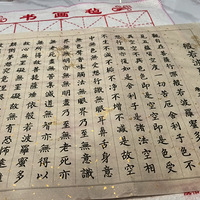 书画毡
若波羅蜜多
度一切苦厄舍利子色不
異空空不異色色即是空空即是色受
想行識亦復如是舍利子是諸法空相
不生不滅不垢不淨不增不減是故空
中無色無受想行識無眼耳鼻舌身意
無色聲香味觸法無眼界乃至無意識
界無無明亦無無明盡乃至無老死亦
無老死盡無苦集滅道無智亦無得以
無所得故菩提薩埵依般若波羅蜜多
故心無罣礙無罣礙故無有恐怖遠離